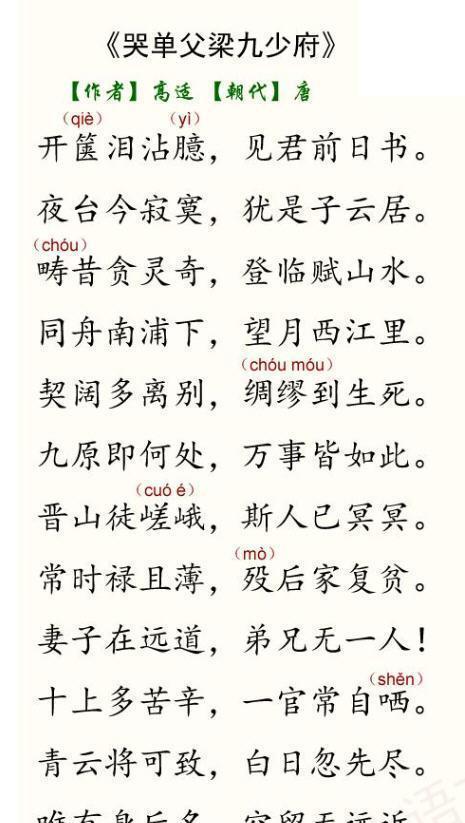 《哭单父梁九少府》
【作者】高适【朝代】唐
（qiè） （yì）
开箧泪沾臆，见君前日书。
夜台今寂寞，犹是子云居。
（chóu）
畴昔贪灵奇，登临赋山水。
同舟南浦下，望月西江里。
（chóu móu）
契阔多离别，绸缪到生死。
九原即何处，万事皆如此。
（cuó é）
晋山徒嵯峨，斯人已冥冥。
（mò）
常时禄且薄，殁后家复贫。
妻子在远道，弟兄无一人！
（shěn）
十上多苦辛，一官常自哂。
青云将可致，白日忽先尽。
唯有身后名，空留无远近。